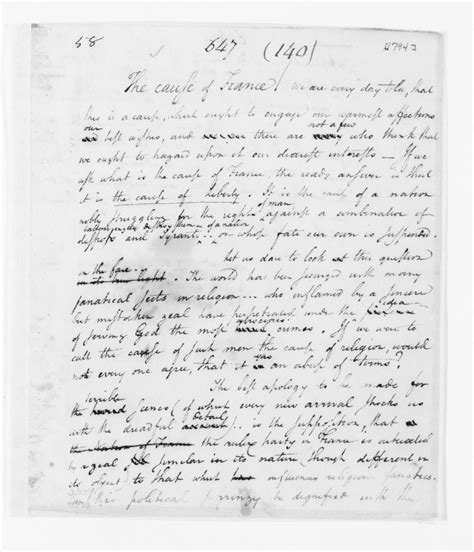 58 647 (140) [1794]
The cause of France! we are every day told, that
this is a cause, which ought to engage our warmest affections
our best wishes, and there are not a few who think that
we ought to hazard upon it our dearest interests — If we
ask what is the cause of France, the ready answer is that
it is the cause of liberty. It is the cause of a nation
nobly struggling for the rights of man against a combination of
despots and tyrants on whose fate our own is suspended.
Let us dare to look at this question
in the face. The world has been scourged with many
fanatical sects in religion — who inflamed by a sincere
but mistaken zeal have perpetuated under the idea
of serving God the most atrocious crimes. If we were to
call the cause of such men the cause of religion, would
not every one agree, that it was an abuse of terms?
The best apology to be made for
the terrible scenes (of which every new arrival shocks us
with the dreadful detail) is the supposition, that
the ruling party in France is actuated
by a zeal similar in its nature (though different in
its object) to that which influences religious fanatics.
this political frenzy be dignified with the